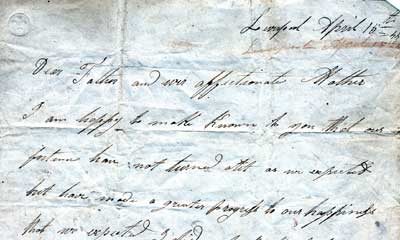 Liverpool April 16th
Dear Father and ever affectionate Mother
I am happy to make known to you that our
fortune have not turned out as we expected
but have made a greater progress to our happiness
that we expected I